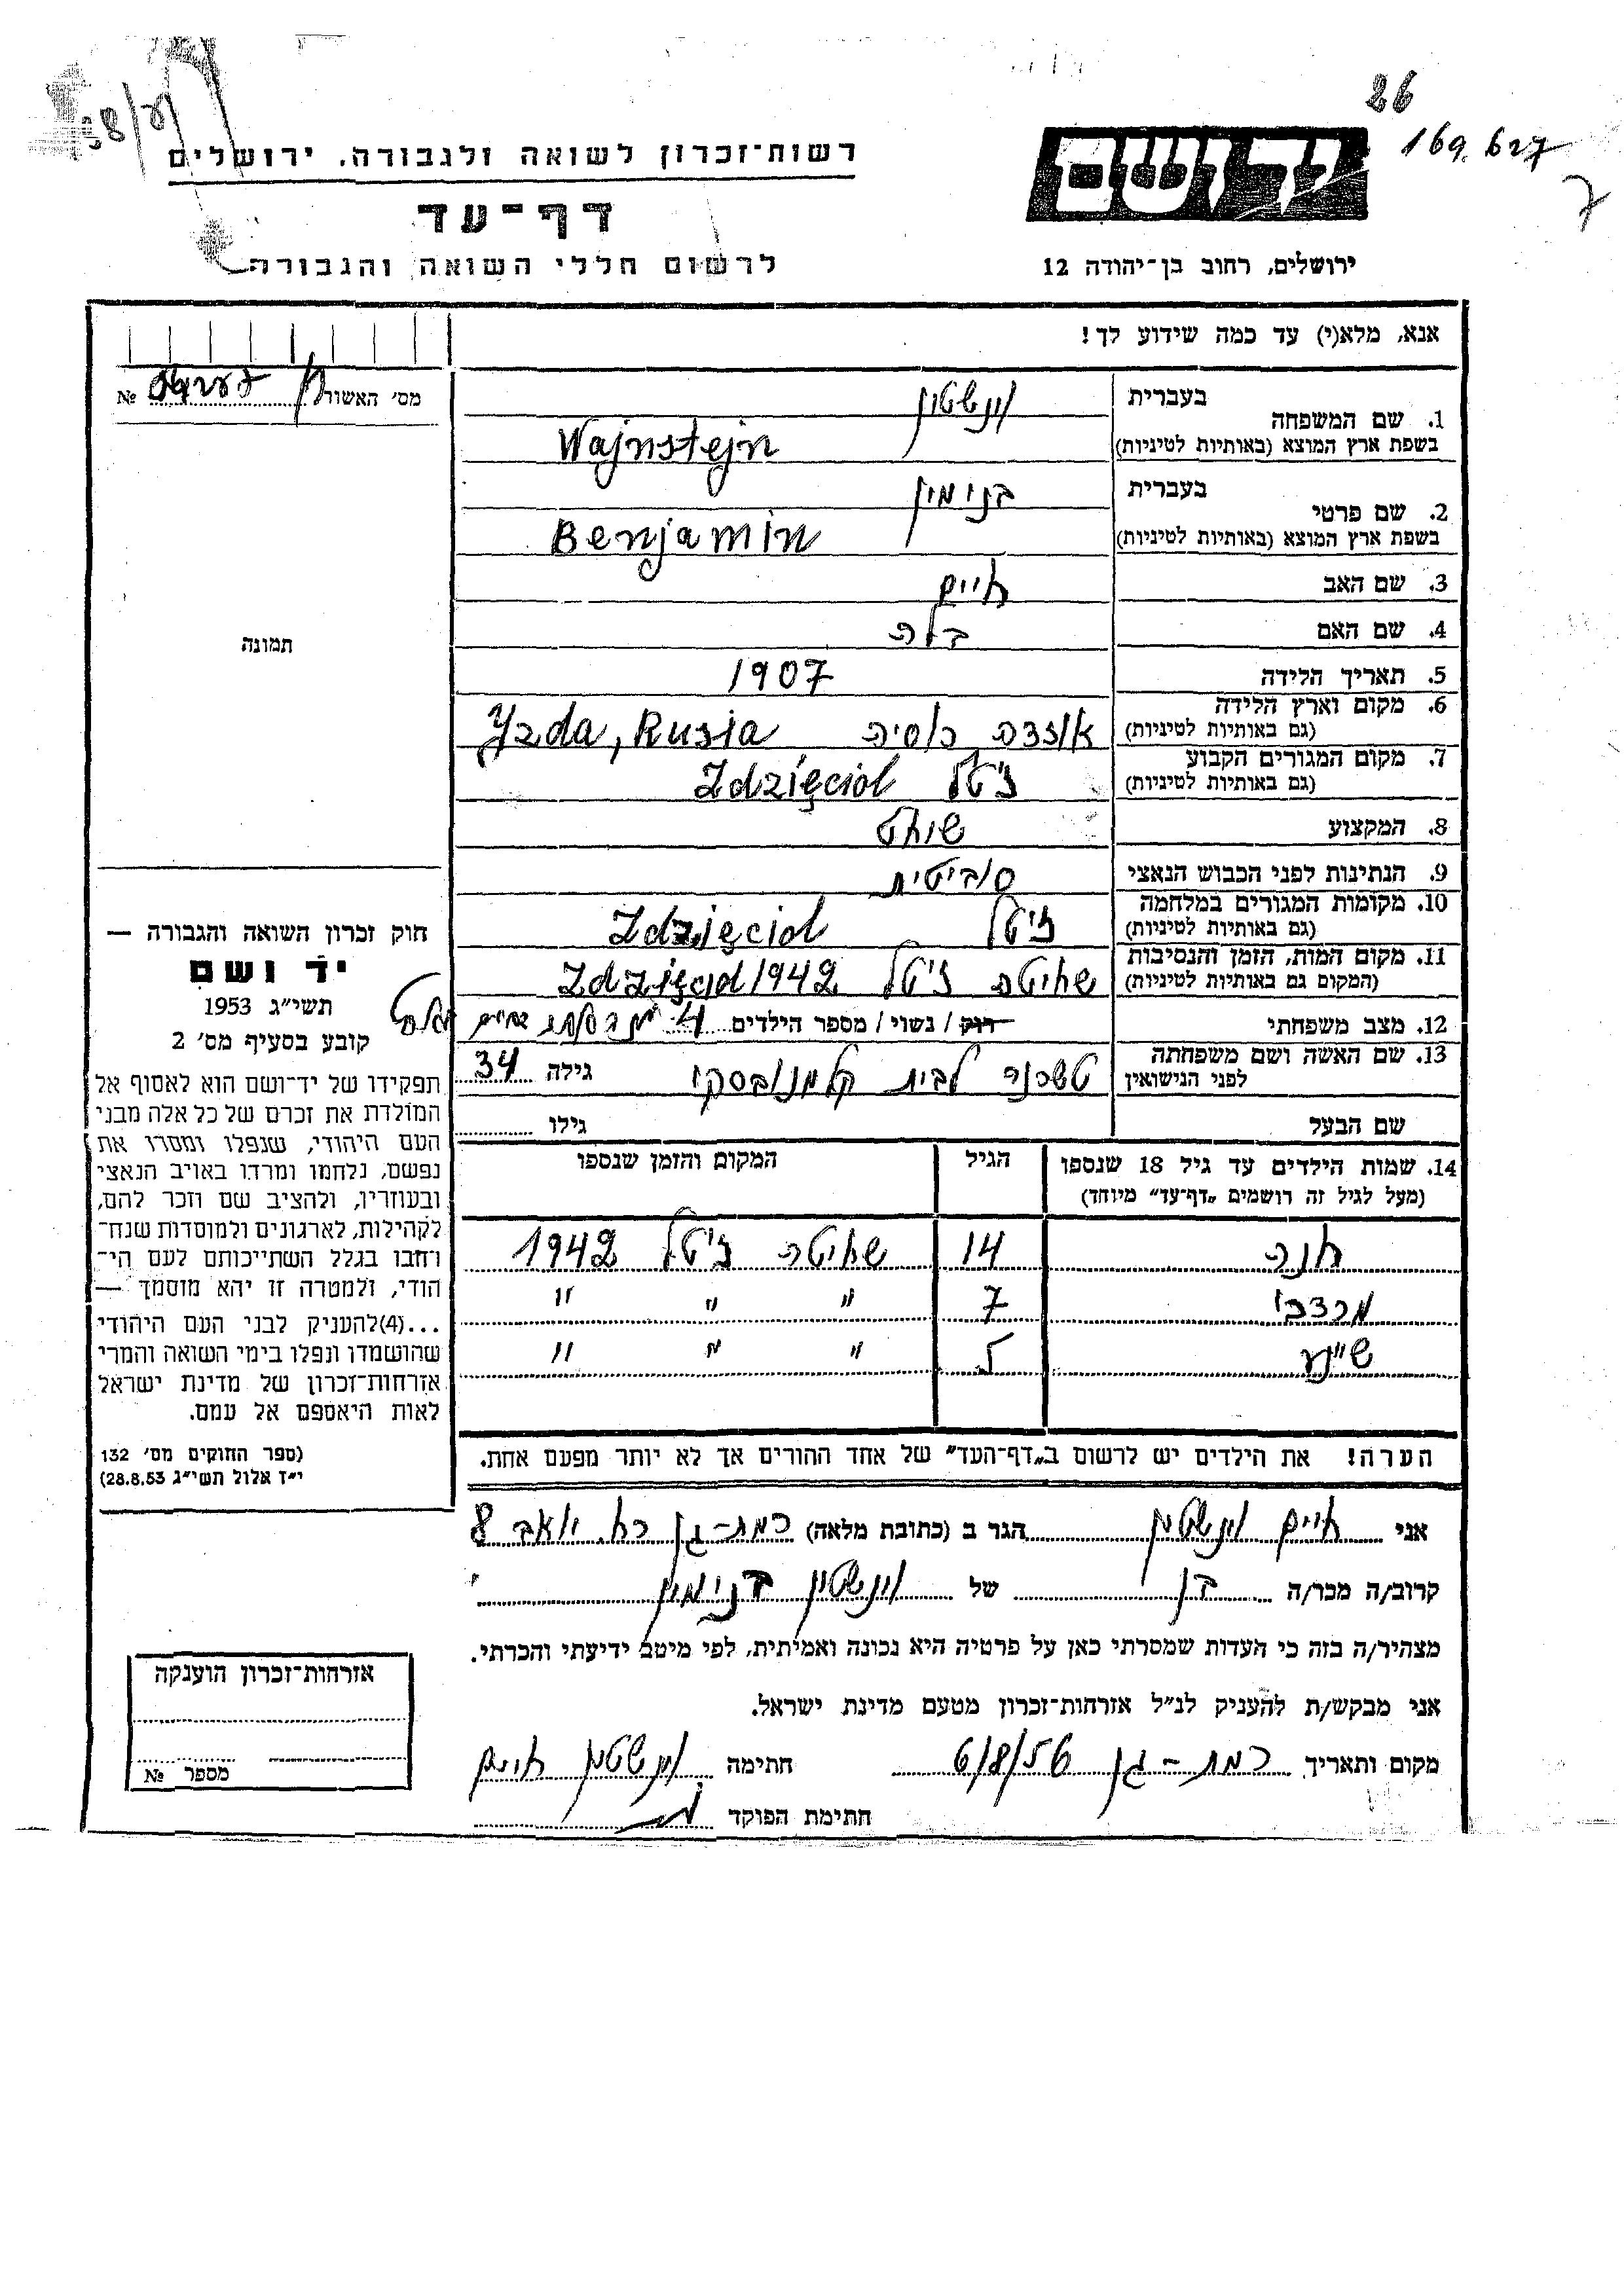 26
169.627
7
רשות־זכרון לשואה ולגבורה, ירושלים
ידושם
דף־עד
לרשום חללי השואה והגבורה
ירושלים, רחוב בן־יהודה 12
אנא, מלא(י) עד כמה שידוע לך!
מס׳ האשור № 
תמונה
חוק זכרון השואה והגבורה —
יד ושם
תשי״ג 1953
קובע בסעיף מס׳ 2
תפקידו של יד־ושם הוא לאסוף אל
המולדת את זכרם של כל אלה מבני
העם היהודי, שנפלו ומסרו את
נפשם, נלחמו ומרדו באויב הנאצי
ובעוזריו, ולהציב שם וזכר להם,
לקהילות, לארגונים ולמוסדות שנח־
רחבו בגלל השתייכותם לעם הי־
הודי, ולמטרה זו יהא מוסמך —
...(4)להעניק לבני העם היהודי
שהושמדו ונפלו בימי השואה והמרי
אזרחות־זכרון של מדינת ישראל
לאות היאספם אל עמם.
(ספר החוקים מס׳ 132
י״ז אלול תשי״ג 28.8.53)
1. שם המשפחה בעברית וינשטין
בשפת ארץ המוצא (באותיות לטיניות) Wajnstejn
2. שם פרטי בעברית בנימין
בשפת ארץ המוצא (באותיות לטיניות) Benjamin
3. שם האב חיים
4. שם האם בלה
5. תאריך הלידה 1907
6. מקום וארץ הלידה
(גם באותיות לטיניות) רוסיה Yzda, Rusia
7. מקום המגורים הקבוע
(גם באותיות לטיניות) ז'טל Zdzięciol
8. המקצוע שוחט
9. הנתינות לפני הכבוש הנאצי סוביטית
10. מקומות המגורים במלחמה
(גם באותיות לטיניות) ז'טל Zdzięciol
11. מקום המות, הזמן והנסיבות
(המקום גם באותיות לטיניות) שחיטה ז'טל Zdzięciol 1942
12. מצב משפחתי רוק / נשוי / מספר הילדים 4
13. שם האשה ושם משפחתה
לפני הנישואין לבית קלמנובסקי גילה 34
שם הבעל גילו
14. שמות הילדים עד גיל 18 שנספו הגיל המקום והזמן שנספו
(מעל לגיל זה רושמים „דף־עד” מיוחד)
חנה 14 שחיטה ז'טל 1942
מרדכי 7 " " "
" " "
הערה! את הילדים יש לרשום ב„דף־העד” של אחד ההורים אך לא יותר מפעם אחת.
אני חיים וינשטין הגר ב (כתובת מלאה) רמת-גן רח. יואב 8
קרוב/ה מכר/ה בן של וינשטין בנימין
מצהיר/ה בזה כי העדות שמסרתי כאן על פרטיה היא נכונה ואמיתית, לפי מיטב ידיעתי והכרתי.
אני מבקש/ת להעניק לנ״ל אזרחות־זכרון מטעם מדינת ישראל.
מקום ותאריך רמת-גן 6/8/56 חתימה וינשטין חיים
חתימת הפוקד
אזרחות־זכרון הוענקה
מספר №